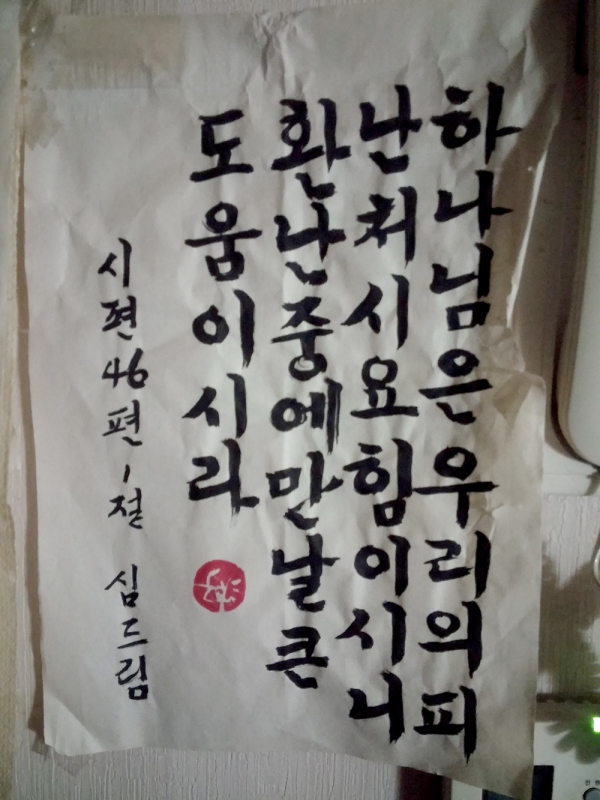 하나님은우리의피
난처시요힘이시니
환난중에만날큰
도움이시라
시편46편1절 심드림